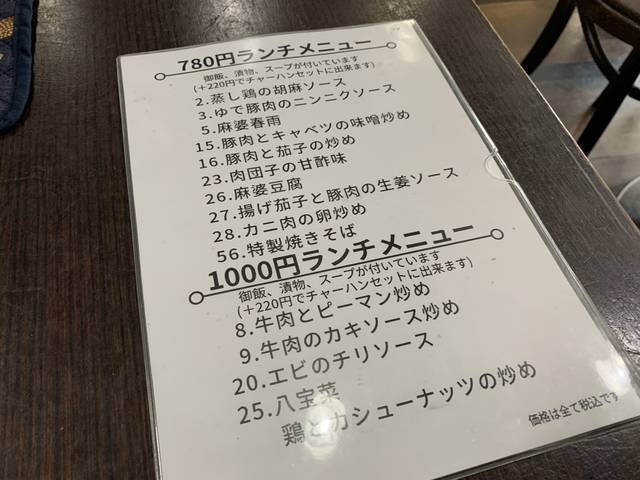 780円ランチメニュー
御飯、漬物、スープが付いています
(＋220円でチャーハンセットに出来ます)
2.蒸し鶏の胡麻ソース
3.ゆで豚肉のニンニクソース
5.麻婆春雨
15.豚肉とキャベツの味噌炒め
16.豚肉と茄子の炒め
23.肉団子の甘酢味
26.麻婆豆腐
27.揚げ茄子と豚肉の生姜ソース
28.カニ肉の卵炒め
56.特製焼きそば
1000円ランチメニュー
御飯、漬物、スープが付いています
(＋220円でチャーハンセットに出来ます)
8.牛肉とピーマン炒め
9.牛肉のカキソース炒め
20.エビのチリソース
25.八宝菜
鶏とカシューナッツの炒め
価格は全て税込です